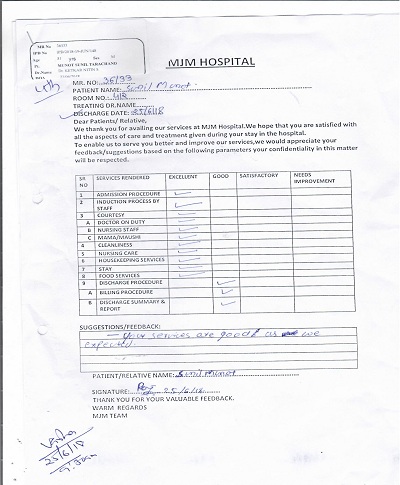 MR No 36193
Sex M
Pt. MUNOT SUNIL TARACHAND
Dr.Name
MJM HOSPITAL
MR. NO: 36193
PATIENT NAME: Sunil Munot.
ROOM NO.
TREATING DR.NAME
DISCHARGE DATE: 25/6/18
Dear Patients/ Relative,
We thank you for availing our services at MJM Hospital.We hope that you are satisfied with
all the aspects of care and treatment given during your stay in the hospital.
To enable us to serve you better and improve our services,we would appreciate your
feedback/suggestions based on the following parameters your confidentiality in this matter
will be respected.
SR NO SERVICES RENDERED EXCELLENT GOOD SATISFACTORY NEEDS IMPROVEMENT
1 ADMISSION PROCEDURE
2 INDUCTION PROCESS BY STAFF
3 COURTESY
A DOCTOR ON DUTY
B NURSING STAFF
C MAMA/MAUSHI
4 CLEANLINESS
5 NURSING CARE
6 HOUSEKEEPING SERVICES
7 STAY
8 FOOD SERVICES
9 DISCHARGE PROCEDURE
A BILLING PROCEDURE
B DISCHARGE SUMMARY & REPORT
SUGGESTIONS/FEEDBACK:
- Your services are good as we
expected.
PATIENT/RELATIVE NAME: Sunil Munot
SIGNATURE: 25/6/18
THANK YOU FOR YOUR VALUABLE FEEDBACK.
WARM REGARDS
MJM TEAM
25/6/18